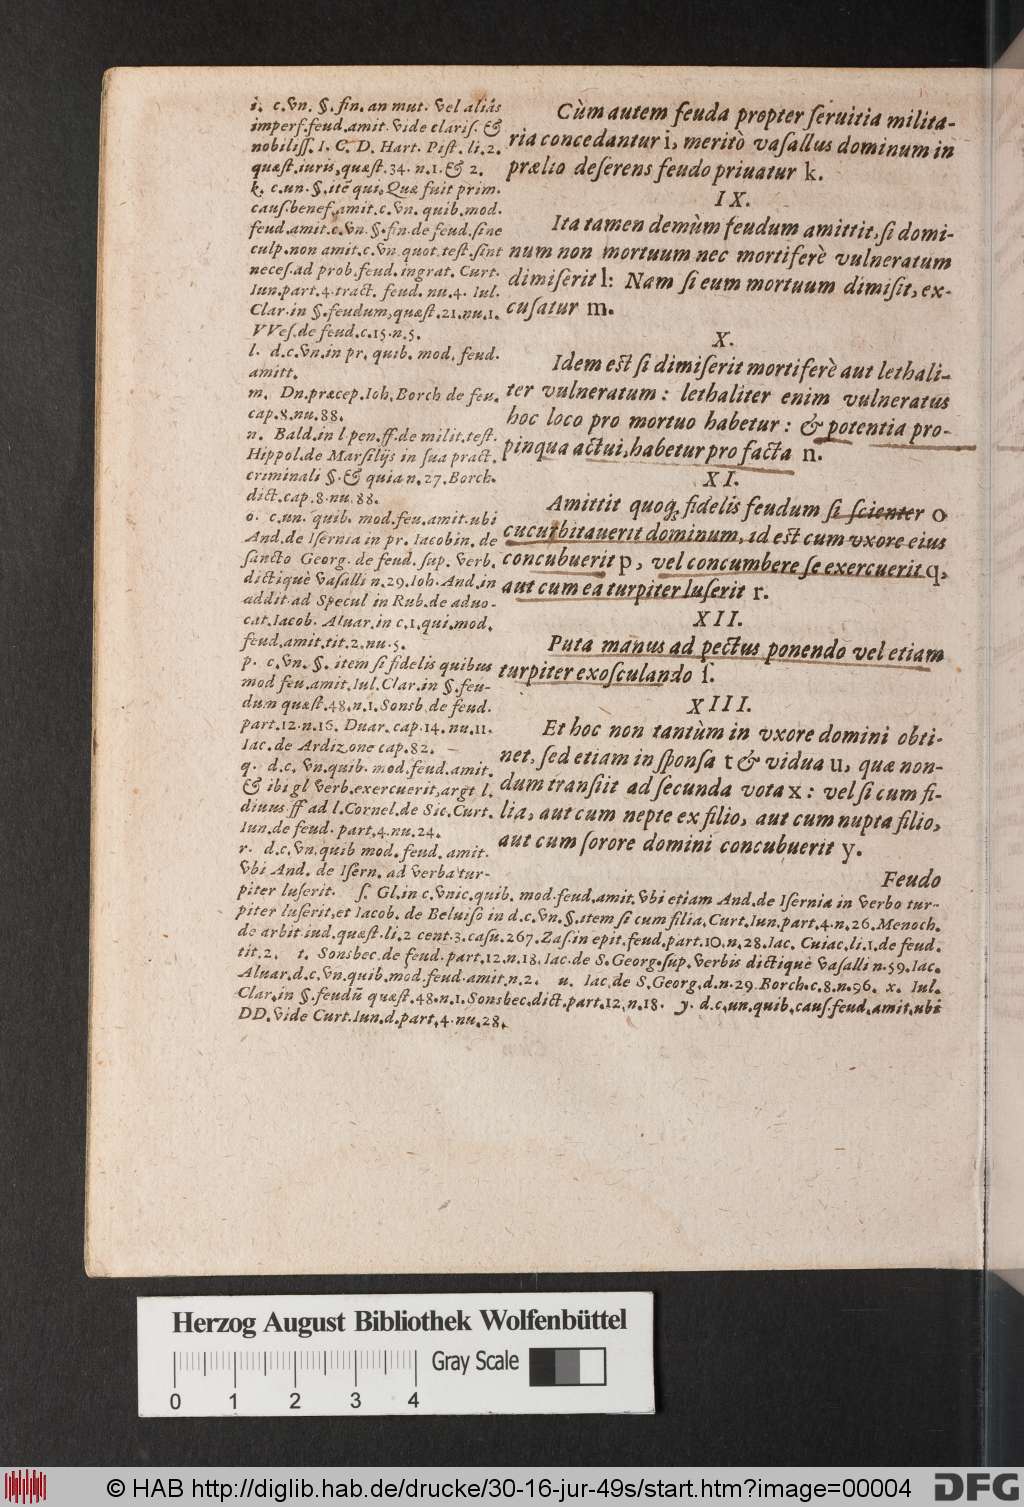 Cùm autem feuda propter ſeruitia milita-
ria concedantur i, meritò vaſallus dominum in
prælio deſerens feudo priuatur k.
IX.
Ita tamen demùm feudum amittit, ſi domi-
num non mortuum nec mortiferè vulneratum
dimiſerit l: Nam ſi eum mortuum dimiſit, ex-
cuſatur m.
X.
Idem eſt ſi dimiſerit mortiferè aut lethali-
ter vulneratum: lethaliter enim vulneratus
hoc loco pro mortuo habetur: & potentia pro-
pinqua actui, habetur pro facta n.
XI.
Amittit quoq; fidelis feudum ſi ſcienter o
cucurbitauerit dominum, id eſt cum vxore eius
concubuerit p, vel concumbere ſe exercuerit q,
aut cum ea turpiter luſerit r.
XII.
Puta manus ad pectus ponendo vel etiam
turpiter exoſculando ſ.
XIII.
Et hoc non tantùm in vxore domini obti-
net, ſed etiam in ſponſa t & vidua u, quæ non-
dum tranſiit ad ſecunda vota x: vel ſi cum fi-
lia, aut cum nepte ex filio, aut cum nupta filio,
aut cum ſorore domini concubuerit y.
Feudo
i. c. vn. §. fin. an mut. vel aliâs
imperf. feud. amit. vide clariſ. &
nobiliſſ. I. C. D. Hart. Piſt. li. 2.
quæſt. iuris, quæſt. 34. n. 1. & 2.
k. c. un. §. itẽ qui. Quæ fuit prim.
cauſ. benef. amit. c. vn. quib. mod.
feud. amit. c. vn. §. fin. de feud. ſine
culp. non amit. c. vn. quot. teſt. ſint
neceſ. ad prob. feud. ingrat. Curt.
Iun. part. 4. tract. feud. nu. 4. Iul.
Clar. in §. feudum, quæſt. 21. nu. 1.
VVeſ. de feud. c. 15. n. 5.
l. d. c. vn. in pr. quib. mod. feud.
amitt.
m. Dn. præcep. Ioh. Borch de feu.
cap. 8. nu. 88.
n. Bald. in l pen. ff. de milit. teſt.
Hippol. de Marſilijs in ſua pract.
criminali §. & quia n. 27. Borch.
dict. cap. 8. nu. 88.
o. c. un. quib. mod. feu. amit. ubi
And. de Iſernia in pr. Iacobin. de
ſancto Georg. de feud. ſup. verb.
dictiquè vaſalli n. 29. Ioh. And. in
addit. ad Specul in Rub. de aduo-
cat. Iacob. Aluar. in c. 1. qui. mod.
feud. amit. tit. 2. nu. 5.
p. c. vn. §. item ſi fidelis quibus
mod feu. amit. Iul. Clar. in §. feu-
dum quæſt. 48. n. 1. Sonsb. de feud.
part. 12. n. 16. Duar. cap. 14. nu. 11.
Iac. de Ardizone cap. 82.
q. d. c. vn. quib. mod. feud. amit.
& ibi gl verb. exercuerit, argt l.
diuus ff ad l. Cornel. de Sic. Curt.
Iun. de feud. part. 4. nu. 24.
r. d. c. vn. quib mod. feud. amit.
vbi And. de Iſern. ad verba tur-
piter luſerit. ſ. Gl. in c. vnic. quib. mod. feud. amit. vbi etiam And. de Iſernia in verbo tur-
piter luſerit, et Iacob. de Beluiſo in d. c. vn. §. item ſi cum filia, Curt. Iun. part. 4. n. 26. Menoch.
de arbit iud. quæſt. li. 2 cent. 3. caſu. 267. Zaſ. in epit. feud. part. 10. n. 28. Iac. Cuiac. li. 1. de feud.
tit. 2. t. Sonsbec. de feud. part. 12. n. 18. Iac. de S. Georg. ſup. verbis dictiquè vaſalli n. 59. Iac.
Aluar. d. c. vn. quib. mod. feud. amit. n. 2. u. Iac. de S. Georg. d. n. 29. Borch. c. 8. n. 96. x. Iul.
Clar. in §. feudũ quæſt. 48. n. 1. Sonsbec. dict. part. 12. n. 18. y. d. c. un. quib. cauſ. feud. amit. ubi
DD. vide Curt. Iun. d. part. 4. nu. 28.
Herzog August Bibliothek Wolfenbüttel
Gray Scale
0 1 2 3 4
© HAB http://diglib.hab.de/drucke/30-16-jur-49s/start.htm?image=00004
DFG